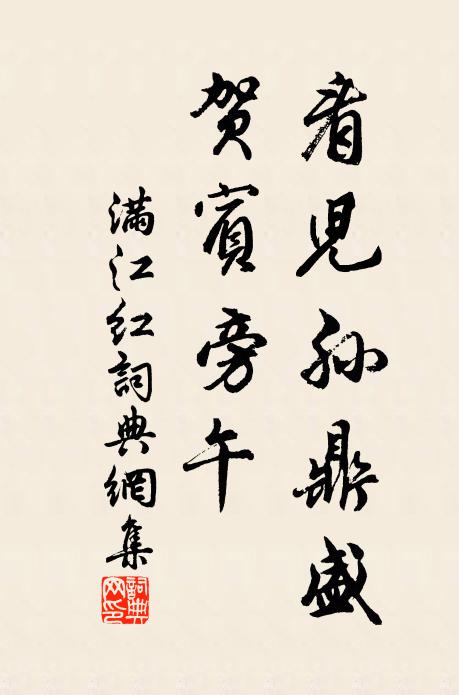 看兒孫鼎盛
賀賓旁午
滿江紅詞典網集
詞典網印